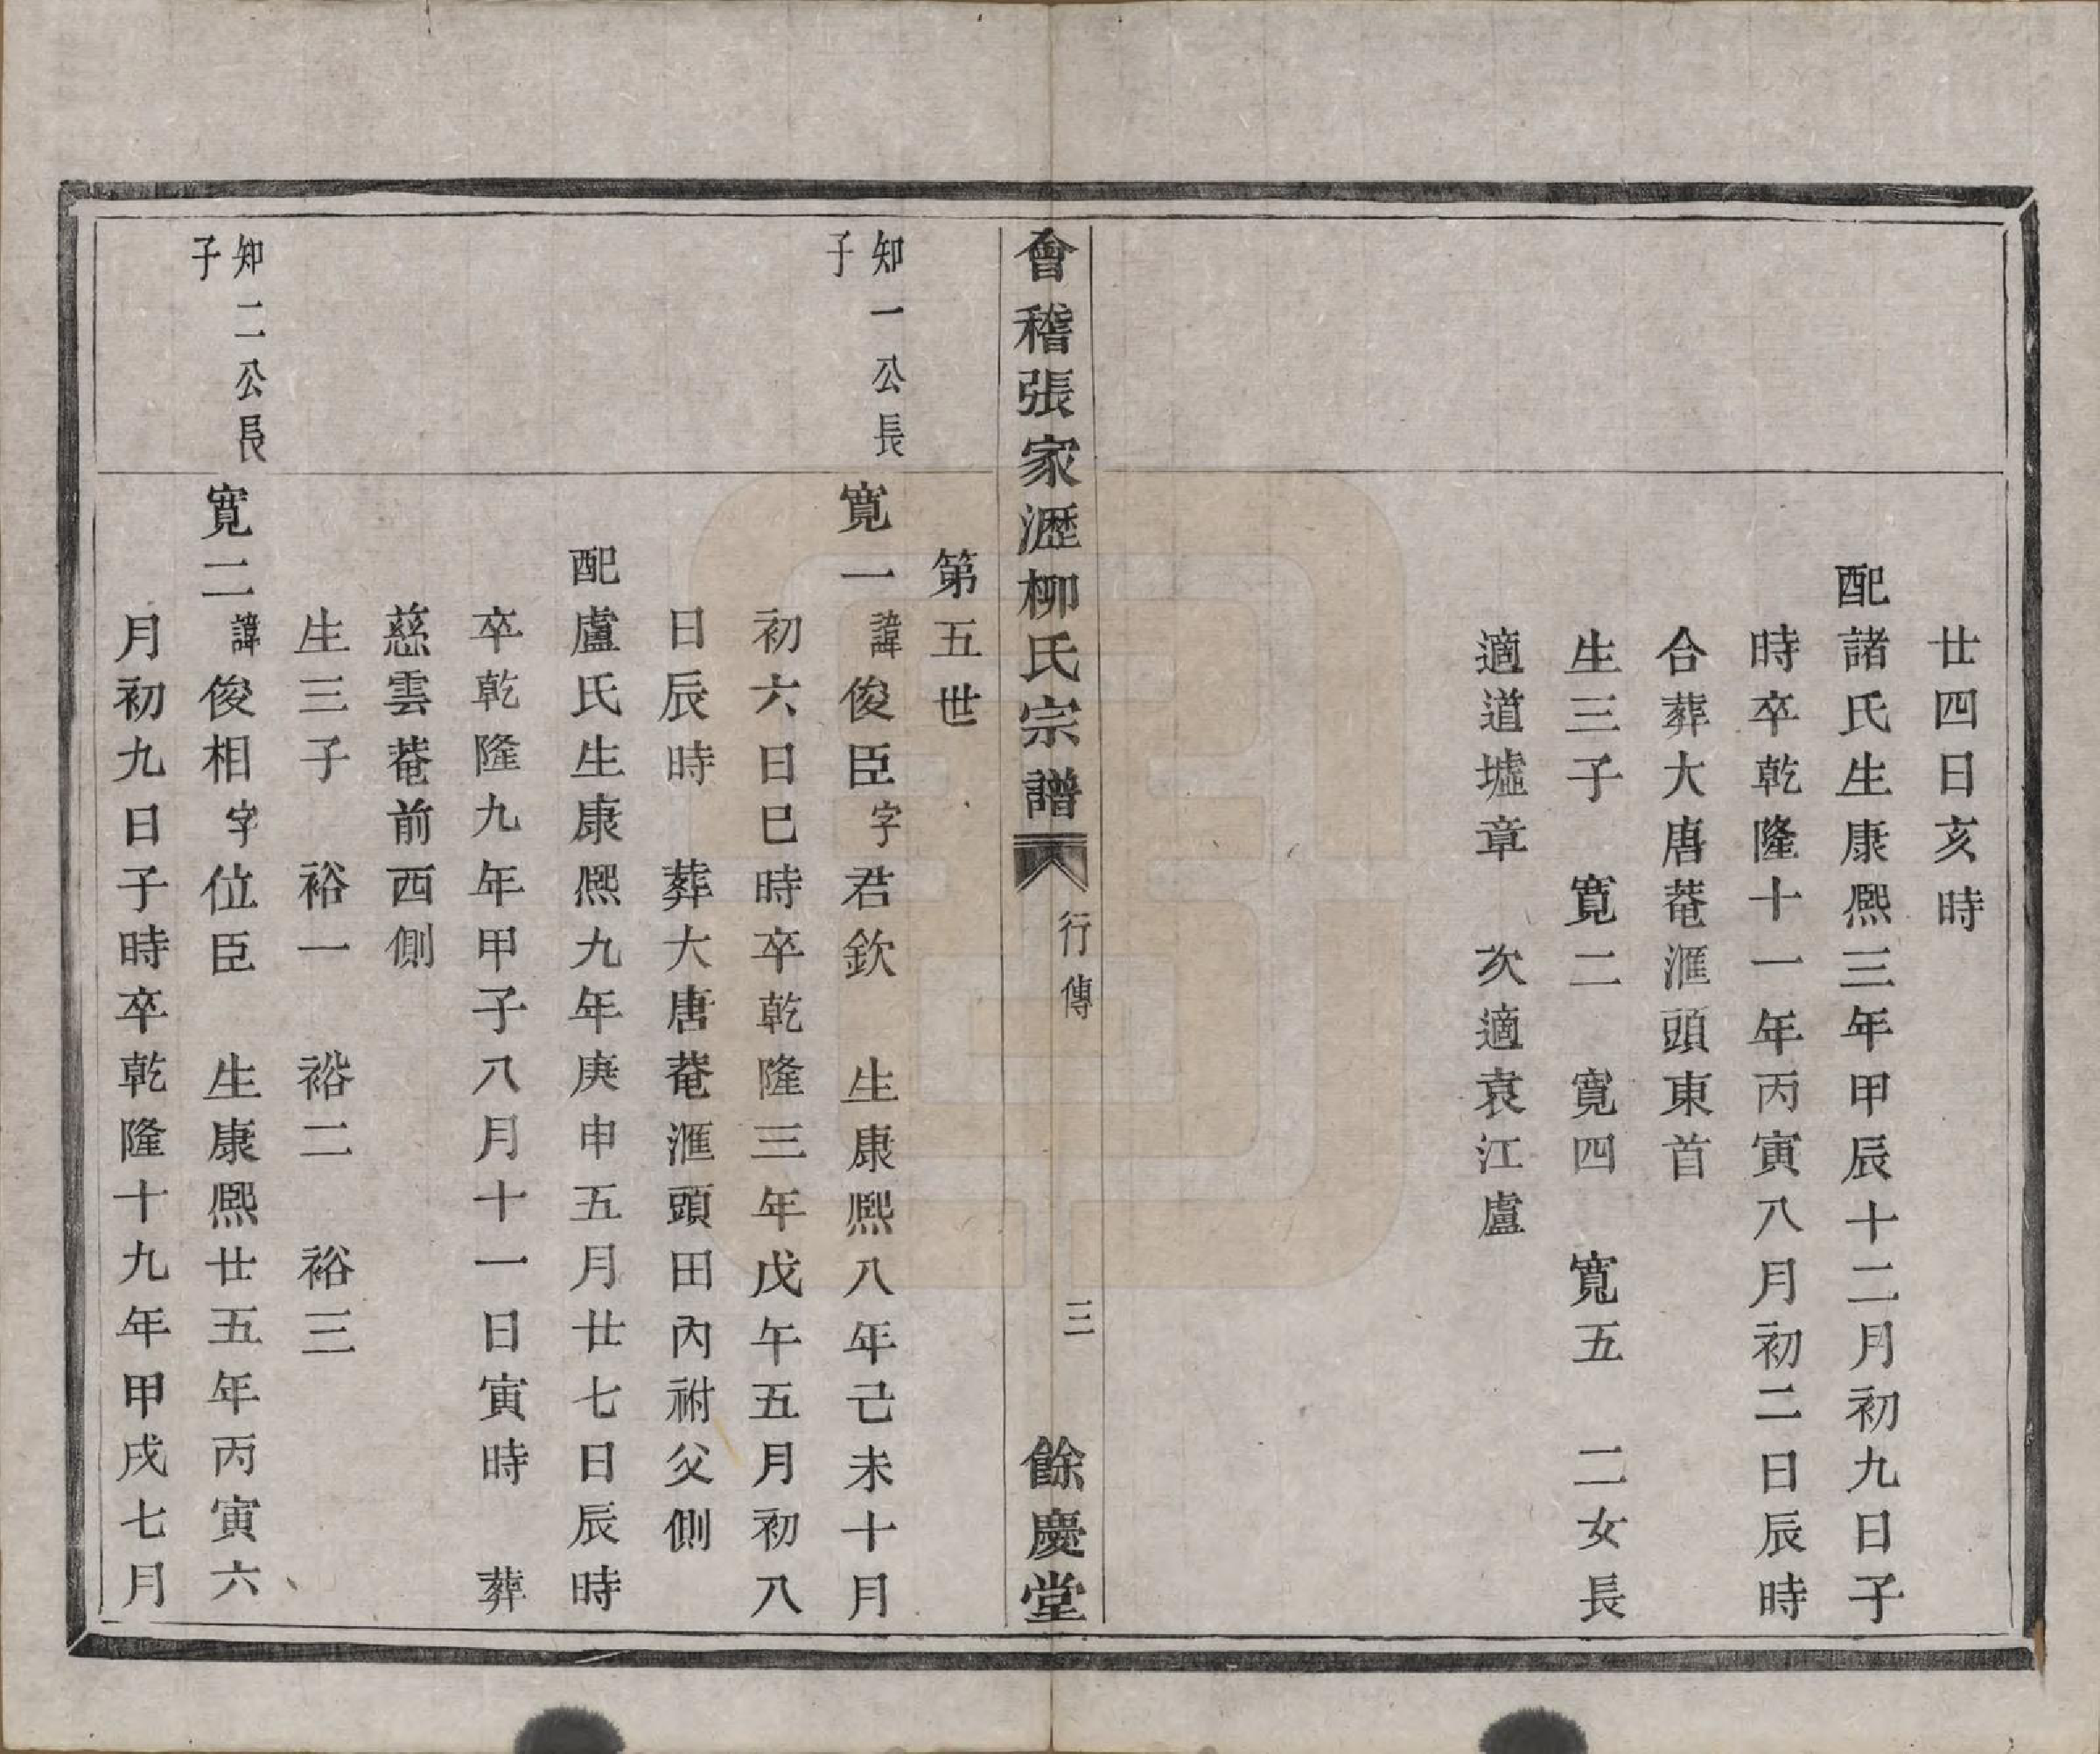 廿四日亥時
配諸氏生康熙三年甲辰十二月初九日子
時卒乾隆十一年丙寅八月初二日辰時
合葬大唐菴滙頭東首
生三子　寬二　寬四　寬五　二女長
適道墟章　次適袁江盧
會稽張家瀝柳氏宗譜　行傳　三　餘慶堂
第五世
知一公長
子
寬一諱俊臣字君欽　生康熙八年己未十月
初六日巳時卒乾隆三年戊午五月初八
日辰時　葬大唐菴滙頭田內祔父側
配盧氏生康熙九年庚申五月廿七日辰時
卒乾隆九年甲子八月十一日寅時　葬
慈雲菴前西側
生三子　裕一　裕二　裕三
知二公長
子
寬二諱俊相字位臣　生康熙廿五年丙寅六
月初九日子時卒乾隆十九年甲戌七月